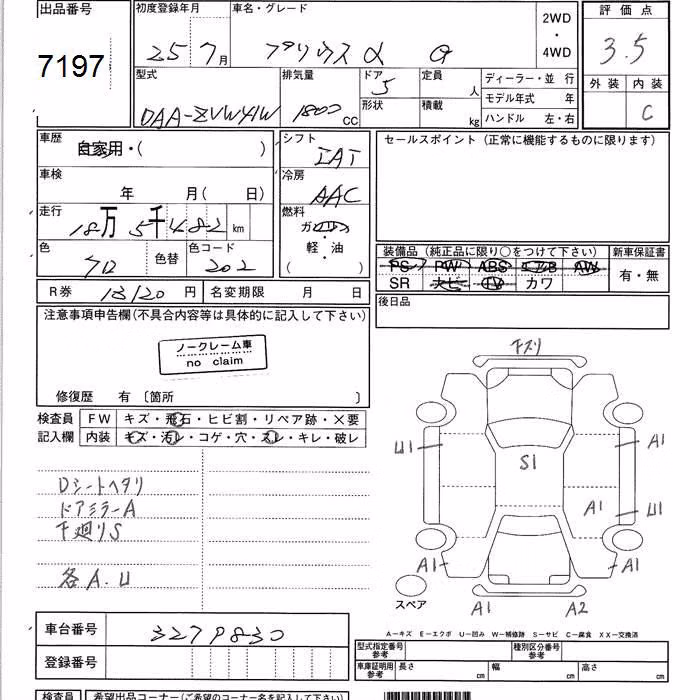 出品番号
7197
初度登録年月
25 7月
車名・グレード
プリウスα G
2WD
・
4WD
評価点
3.5
外装 内装
C
型式
DAA-ZVW41W
排気量
1800 CC
ドア
5
形状
定員
人
積載
kg
ディーラー・並 行
モデル年式 年
ハンドル 左・右
車歴
自家用・( )
車検
年 月( 日)
走行
18万5千482 km
色
クロ
色替
色コード
202
シフト
IAT
冷房
AAC
燃料
ガソリン
軽・油
( )
セールスポイント (正常に機能するものに限ります)
装備品 (純正品に限り○をつけて下さい)
PS PW ABS エアB AW
SR ナビ TV カワ
新車保証書
有・無
後日品
R券 13120 円
名変期限 月 日
注意事項申告欄(不具合内容等は具体的に記入して下さい)
ノークレーム車
no claim
修復歴 有 〔箇所 〕
検査員
記入欄
FW キズ・飛石・ヒビ割・リペア跡・×要
内装 キズ・汚レ・コゲ・穴・スレ・キレ・破レ
Dシートヘタリ
ドアミラーA
下廻りS
各A.U
下ズリ
U1
A1
S1
A1
U1
A1
A1
A1
A2
スペア
A−キズ E−エクボ U−凹み W−補修跡 S−サビ C−腐食 XX−交換済
車台番号
3279830
登録番号
型式指定番号
参考
種別区分番号
参考
車庫証明用
参考
長さ cm
幅 cm
高さ cm
検査員
希望出品コーナー(ご希望のコーナー名を記入下さい)